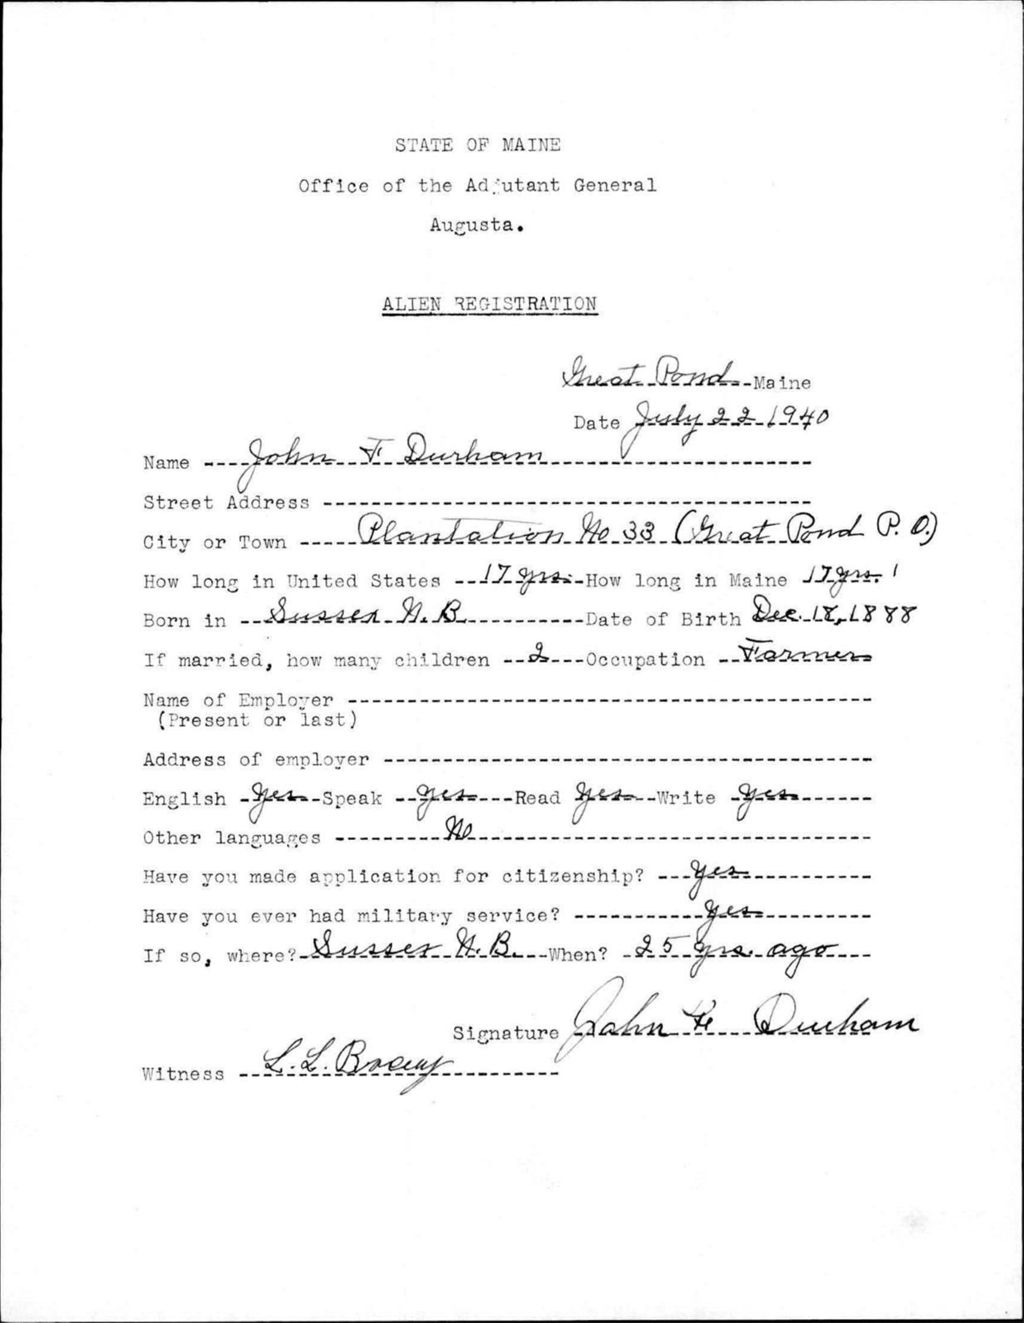 STATE OF MAINE
Office of the Adjutant General
Augusta.
ALIEN REGISTRATION
Great Pond Maine
Date July 22 1940
Name John F Durham
Street Address
City or Town Plantation No 33 (Great Pond P. O.)
How long in United States 17 yrs. How long in Maine 17 yrs.
Born in Sussex N. B. Date of Birth Dec. 18, 1888
If married, how many children 2 Occupation Farmer
Name of Employer
(Present or last)
Address of employer
English Yes Speak Yes Read Yes Write Yes
Other languages No
Have you made application for citizenship? Yes
Have you ever had military service? Yes
If so, where? Sussex N. B. When? 25 yrs. ago
Signature John F. Durham
Witness L. L.